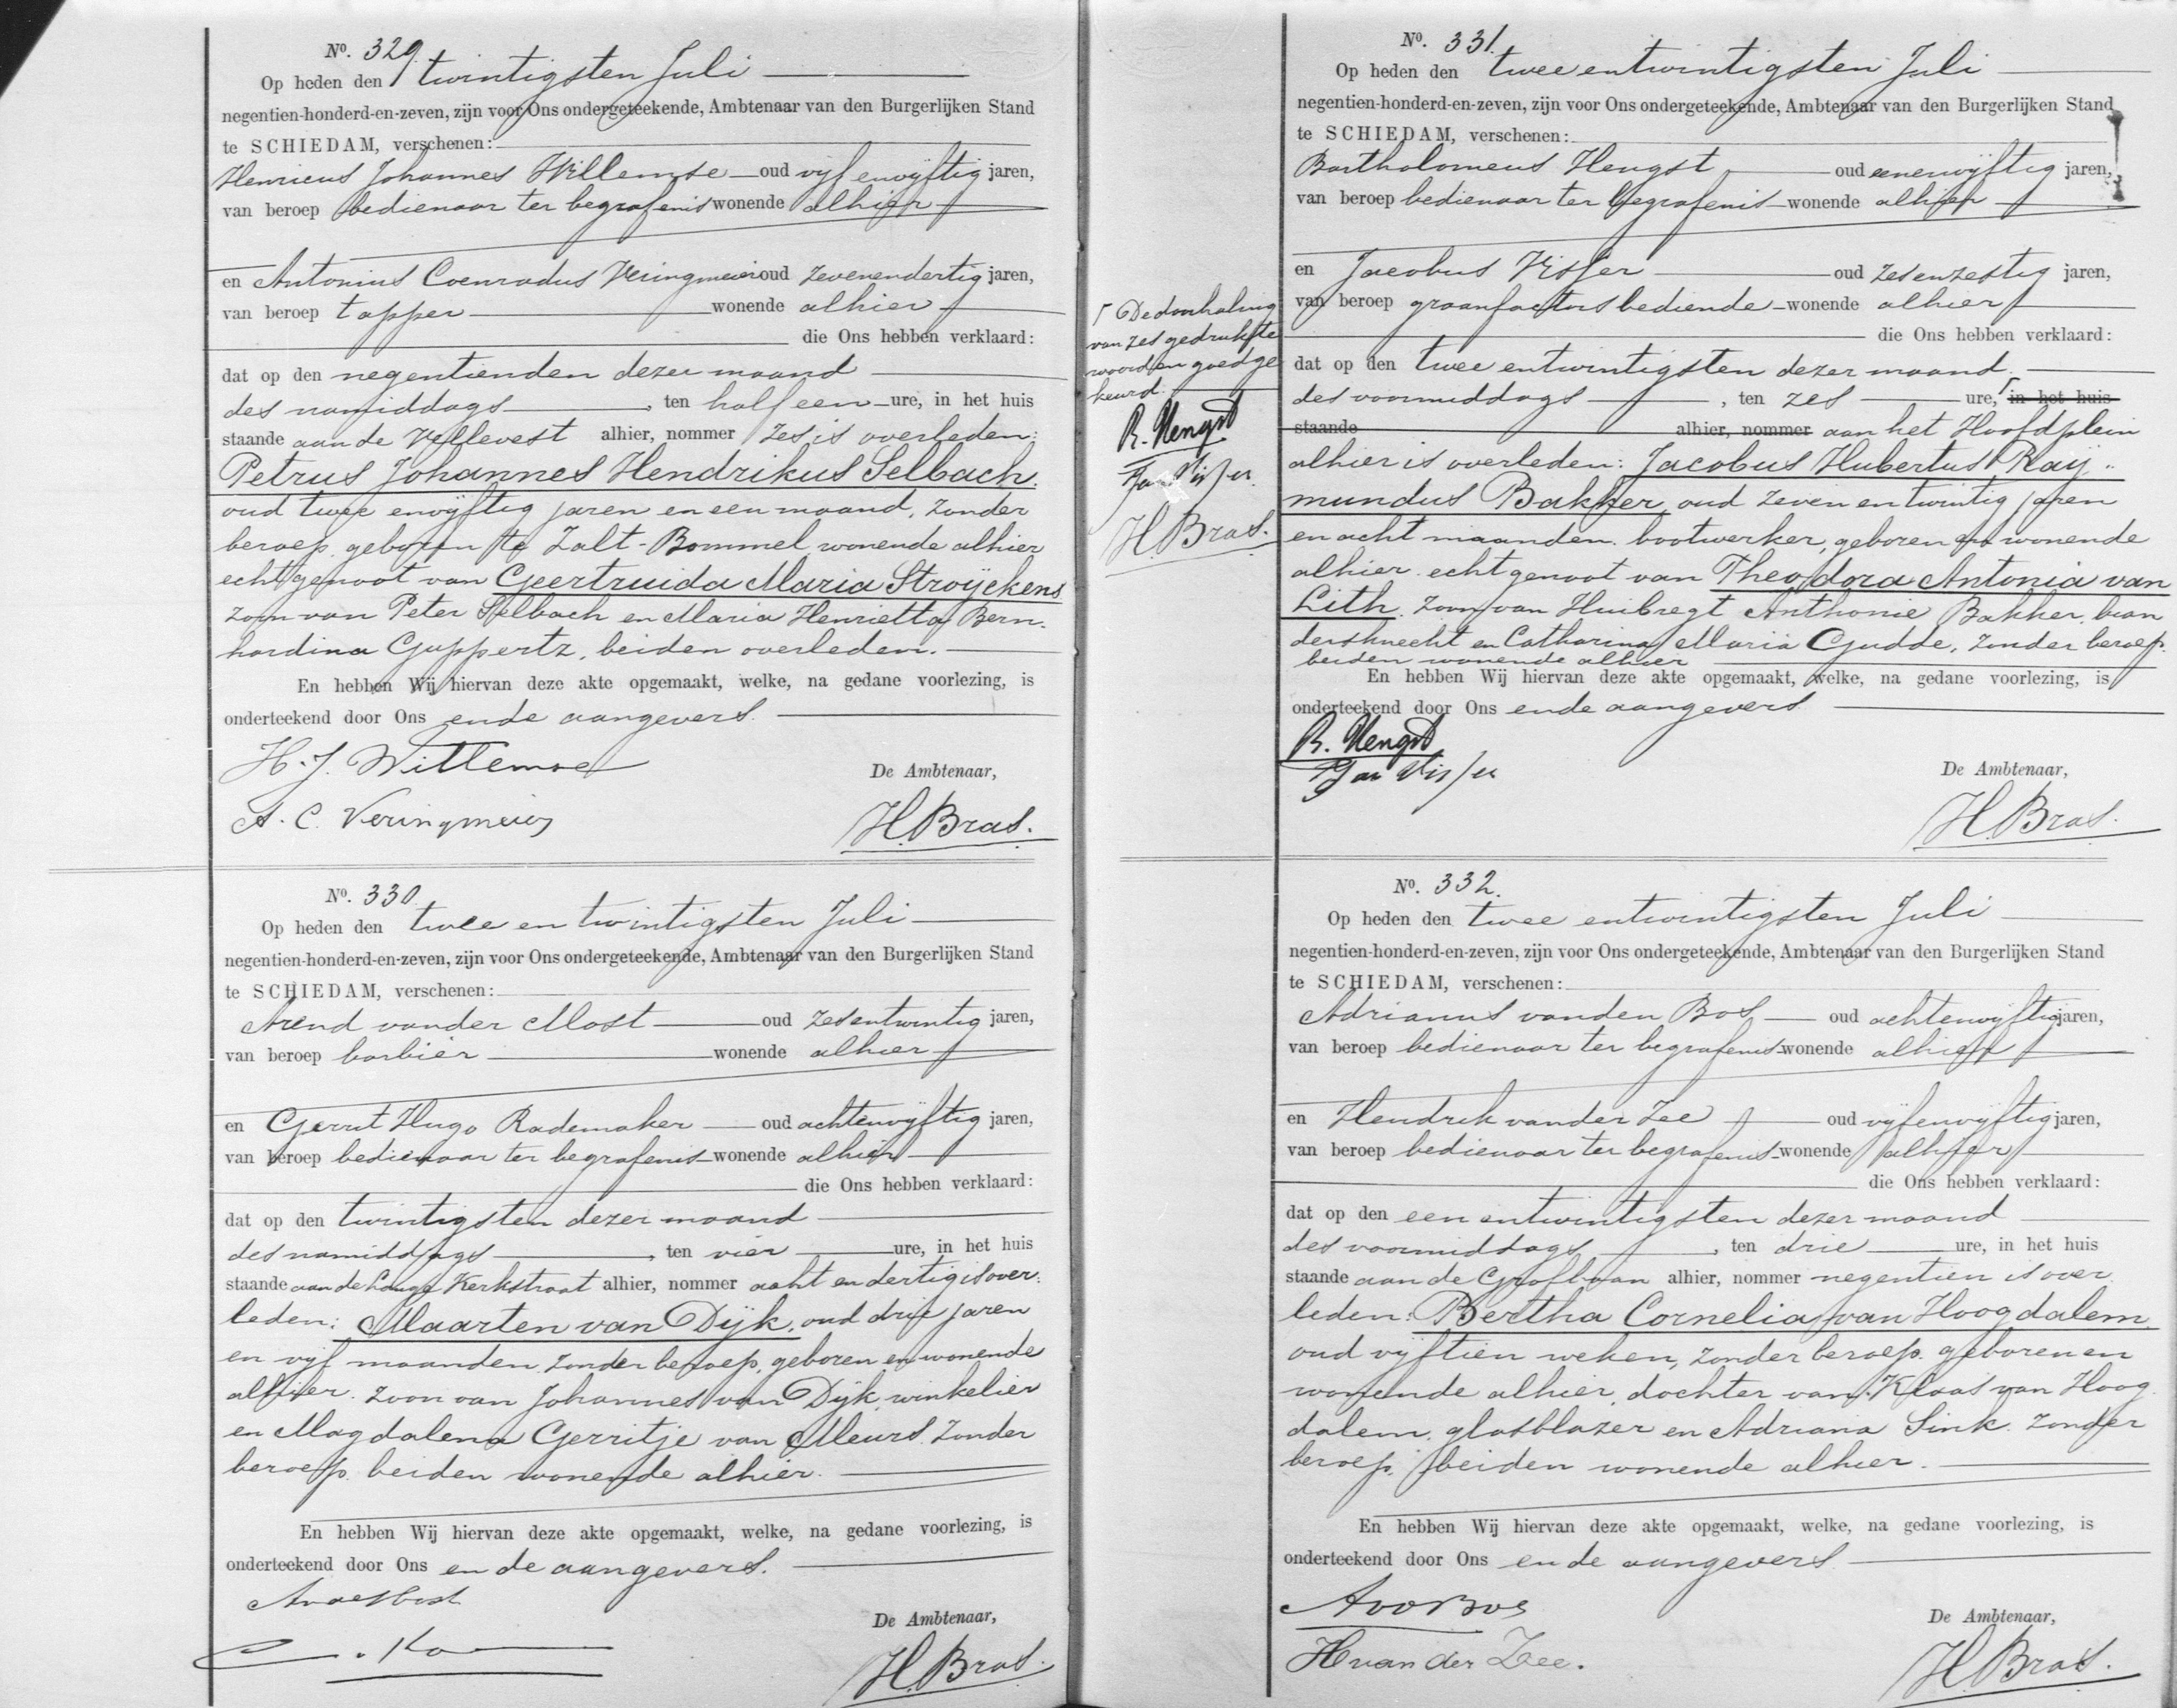 No. 329.
Op heden den twintigsten Juli
negentien-honderd-en-zeven, zijn voor Ons ondergeteekende, Ambtenaar van den Burgerlijken Stand
te SCHIEDAM, verschenen:
Henricus Johannes Willemse oud vijfenvijftig jaren,
van beroep bedienaar ter begrafenis wonende alhier
en Antonius Coenradus Veringmeier oud zevenendertig jaren,
van beroep tapper wonende alhier
die Ons hebben verklaard:
dat op den negentienden dezer maand
des namiddags, ten half een ure, in het huis
staande aan de Vellevest alhier, nommer zes is overleden:
Petrus Johannes Hendrikus Selbach.
oud twee envijftig jaren en een maand, zonder
beroep, geboren te Zalt-Bommel wonende alhier
echtgenoot van Geertruida Maria Stroijckens
zoon van Peter Selbach en Maria Henrietta Bern-
hardina Guppertz, beiden overleden.
En hebben Wij hiervan deze akte opgemaakt, welke, na gedane voorlezing, is
onderteekend door Ons en de aangevers.
H. J. Willemse
De Ambtenaar,
A. C. Veringmeier
H. Bras.
No. 330
Op heden den twee en twintigsten Juli
negentien-honderd-en-zeven, zijn voor Ons ondergeteekende, Ambtenaar van den Burgerlijken Stand
te SCHIEDAM, verschenen:
Arend van der Most oud zesentwintig jaren,
van beroep barbier wonende alhier
en Gerrit Hugo Rademaker oud achtenvijftig jaren,
van beroep bedienaar ter begrafenis wonende alhier
die Ons hebben verklaard:
dat op den twintigsten dezer maand
des namiddags, ten vier ure, in het huis
staande aan de Lange Kerkstraat alhier, nommer acht en dertig is over:
leden: Maarten van Dijk, oud drie jaren
en vijf maanden, zonder beroep, geboren en wonende
alhier. zoon van Johannes van Dijk, winkelier
en Magdalena Gerritje van Meurs. zonder
beroep. beiden wonende alhier.
En hebben Wij hiervan deze akte opgemaakt, welke, na gedane voorlezing, is
onderteekend door Ons en de aangevers.
De Ambtenaar,
H. Bras.
Γ De doorhaling
van zes gedrukte
woorden goedge
keurd.
B. Hengst
Jac Visser
H. Bras.
No. 331.
Op heden den twee entwintigsten Juli
negentien-honderd-en-zeven, zijn voor Ons ondergeteekende, Ambtenaar van den Burgerlijken Stand
te SCHIEDAM, verschenen:
Bartholomeus Hengst oud eenenvijftig jaren,
van beroep bedienaar ter begrafenis wonende alhier
en Jacobus Visser oud zesenzestig jaren,
van beroep graanfactorsbediende wonende alhier
die Ons hebben verklaard:
dat op den twee entwintigsten dezer maand.
des voormiddags, ten zes ure, Γ in het huis
staande alhier, nommer aan het Hoofdplein
alhier is overleden: Jacobus Hubertus Raij-
mundus Bakker, oud zeven en twintig jaren
en acht maanden. bootwerker, geboren en wonende
alhier. echtgenoot van Theodora Antonia van
Lith. zoon van Huibregt Anthonie Bakker, bran
dersknecht en Catharina Maria Gudde, zonder beroep.
beiden wonende alhier
En hebben Wij hiervan deze akte opgemaakt, welke, na gedane voorlezing, is
onderteekend door Ons en de aangevers
B. Hengst
Jac Visser
De Ambtenaar,
H. Bras.
No. 332.
Op heden den twee entwintigsten Juli
negentien-honderd-en-zeven, zijn voor Ons ondergeteekende, Ambtenaar van den Burgerlijken Stand
te SCHIEDAM, verschenen:
Adrianus van den Bos oud achtenvijftig jaren,
van beroep bedienaar ter begrafenis wonende alhier
en Hendrik van der Zee oud vijfenvijftig jaren,
van beroep bedienaar ter begrafenis wonende alhier
die Ons hebben verklaard:
dat op den een entwintigsten dezer maand
des voormiddags, ten drie ure, in het huis
staande aan de Grofbaan alhier, nommer negentien is over
leden: Bertha Cornelia van Hoogdalem.
oud vijftien weken, zonder beroep. geboren en
wonende alhier, dochter van Klaas van Hoog
dalem, glasblazer en Adriana Sink. zonder
beroep, beiden wonende alhier.
En hebben Wij hiervan deze akte opgemaakt, welke, na gedane voorlezing, is
onderteekend door Ons en de aangevers
AvdBos
De Ambtenaar,
H van der Zee.
H. Bras.